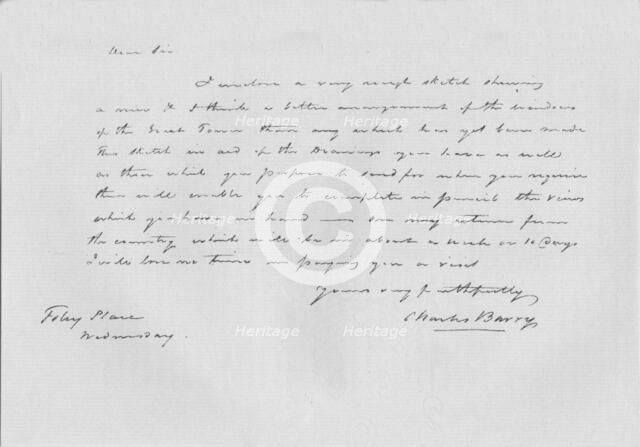 Dear Sir
I enclose a very rough sketch shewing
a new & I think a better arrangement of the windows
of the Great Tower than any which has yet been made
This sketch in aid of the Drawings you have as well
as those which you purpose to send for when you require
them will enable you to complete in pencil the views
which you have in hand — on my return from
the country which will be in about a week or 10 days
I will lose no time in paying you a visit
Yours very faithfully
Charles Barry
Foley Place
Wednesday.
Heritage
Heritage
Heritage
Heritage
Heritage
Heritage